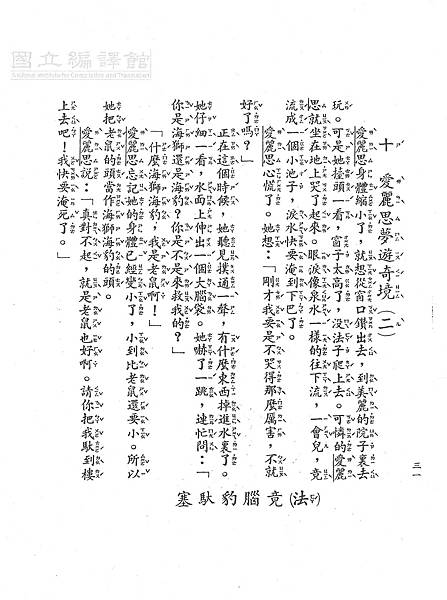 國立編譯館
National Institute for Compilation and Translation
十 愛麗思夢遊奇境(二)
愛麗思身體縮小了,就想從窗口鑽出去,到美麗的院子裏去
玩。可是她擡頭一看,窗子太高了,沒法子爬上去。可憐的愛麗
思就坐在地上哭了起來。眼淚像泉水一樣的往下流,一會兒,竟
流成一個小池子,淚水快要淹到下巴了。
愛麗思心慌了。她想:「剛才我要是不哭得那麼厲害,不就
好了嗎?」
正在這個時候,她聽見撲通一聲,有什麼東西掉進水裏了。
她仔細一看,水面上伸出一個大腦袋。她嚇了一跳,連忙問:「
你是海獅還是海豹?你是不是來救我的?」
「什麼海獅海豹,我是老鼠啊!」
愛麗思忘記她的身體已經變小了,小到比老鼠還要小。所以
她把老鼠的頭當作海獅海豹的頭。
愛麗思說:「真對不起,就是老鼠也好啊。請你把我馱到樓
上去吧!我快要淹死了。」
塞馱豹腦竟(法)
三一